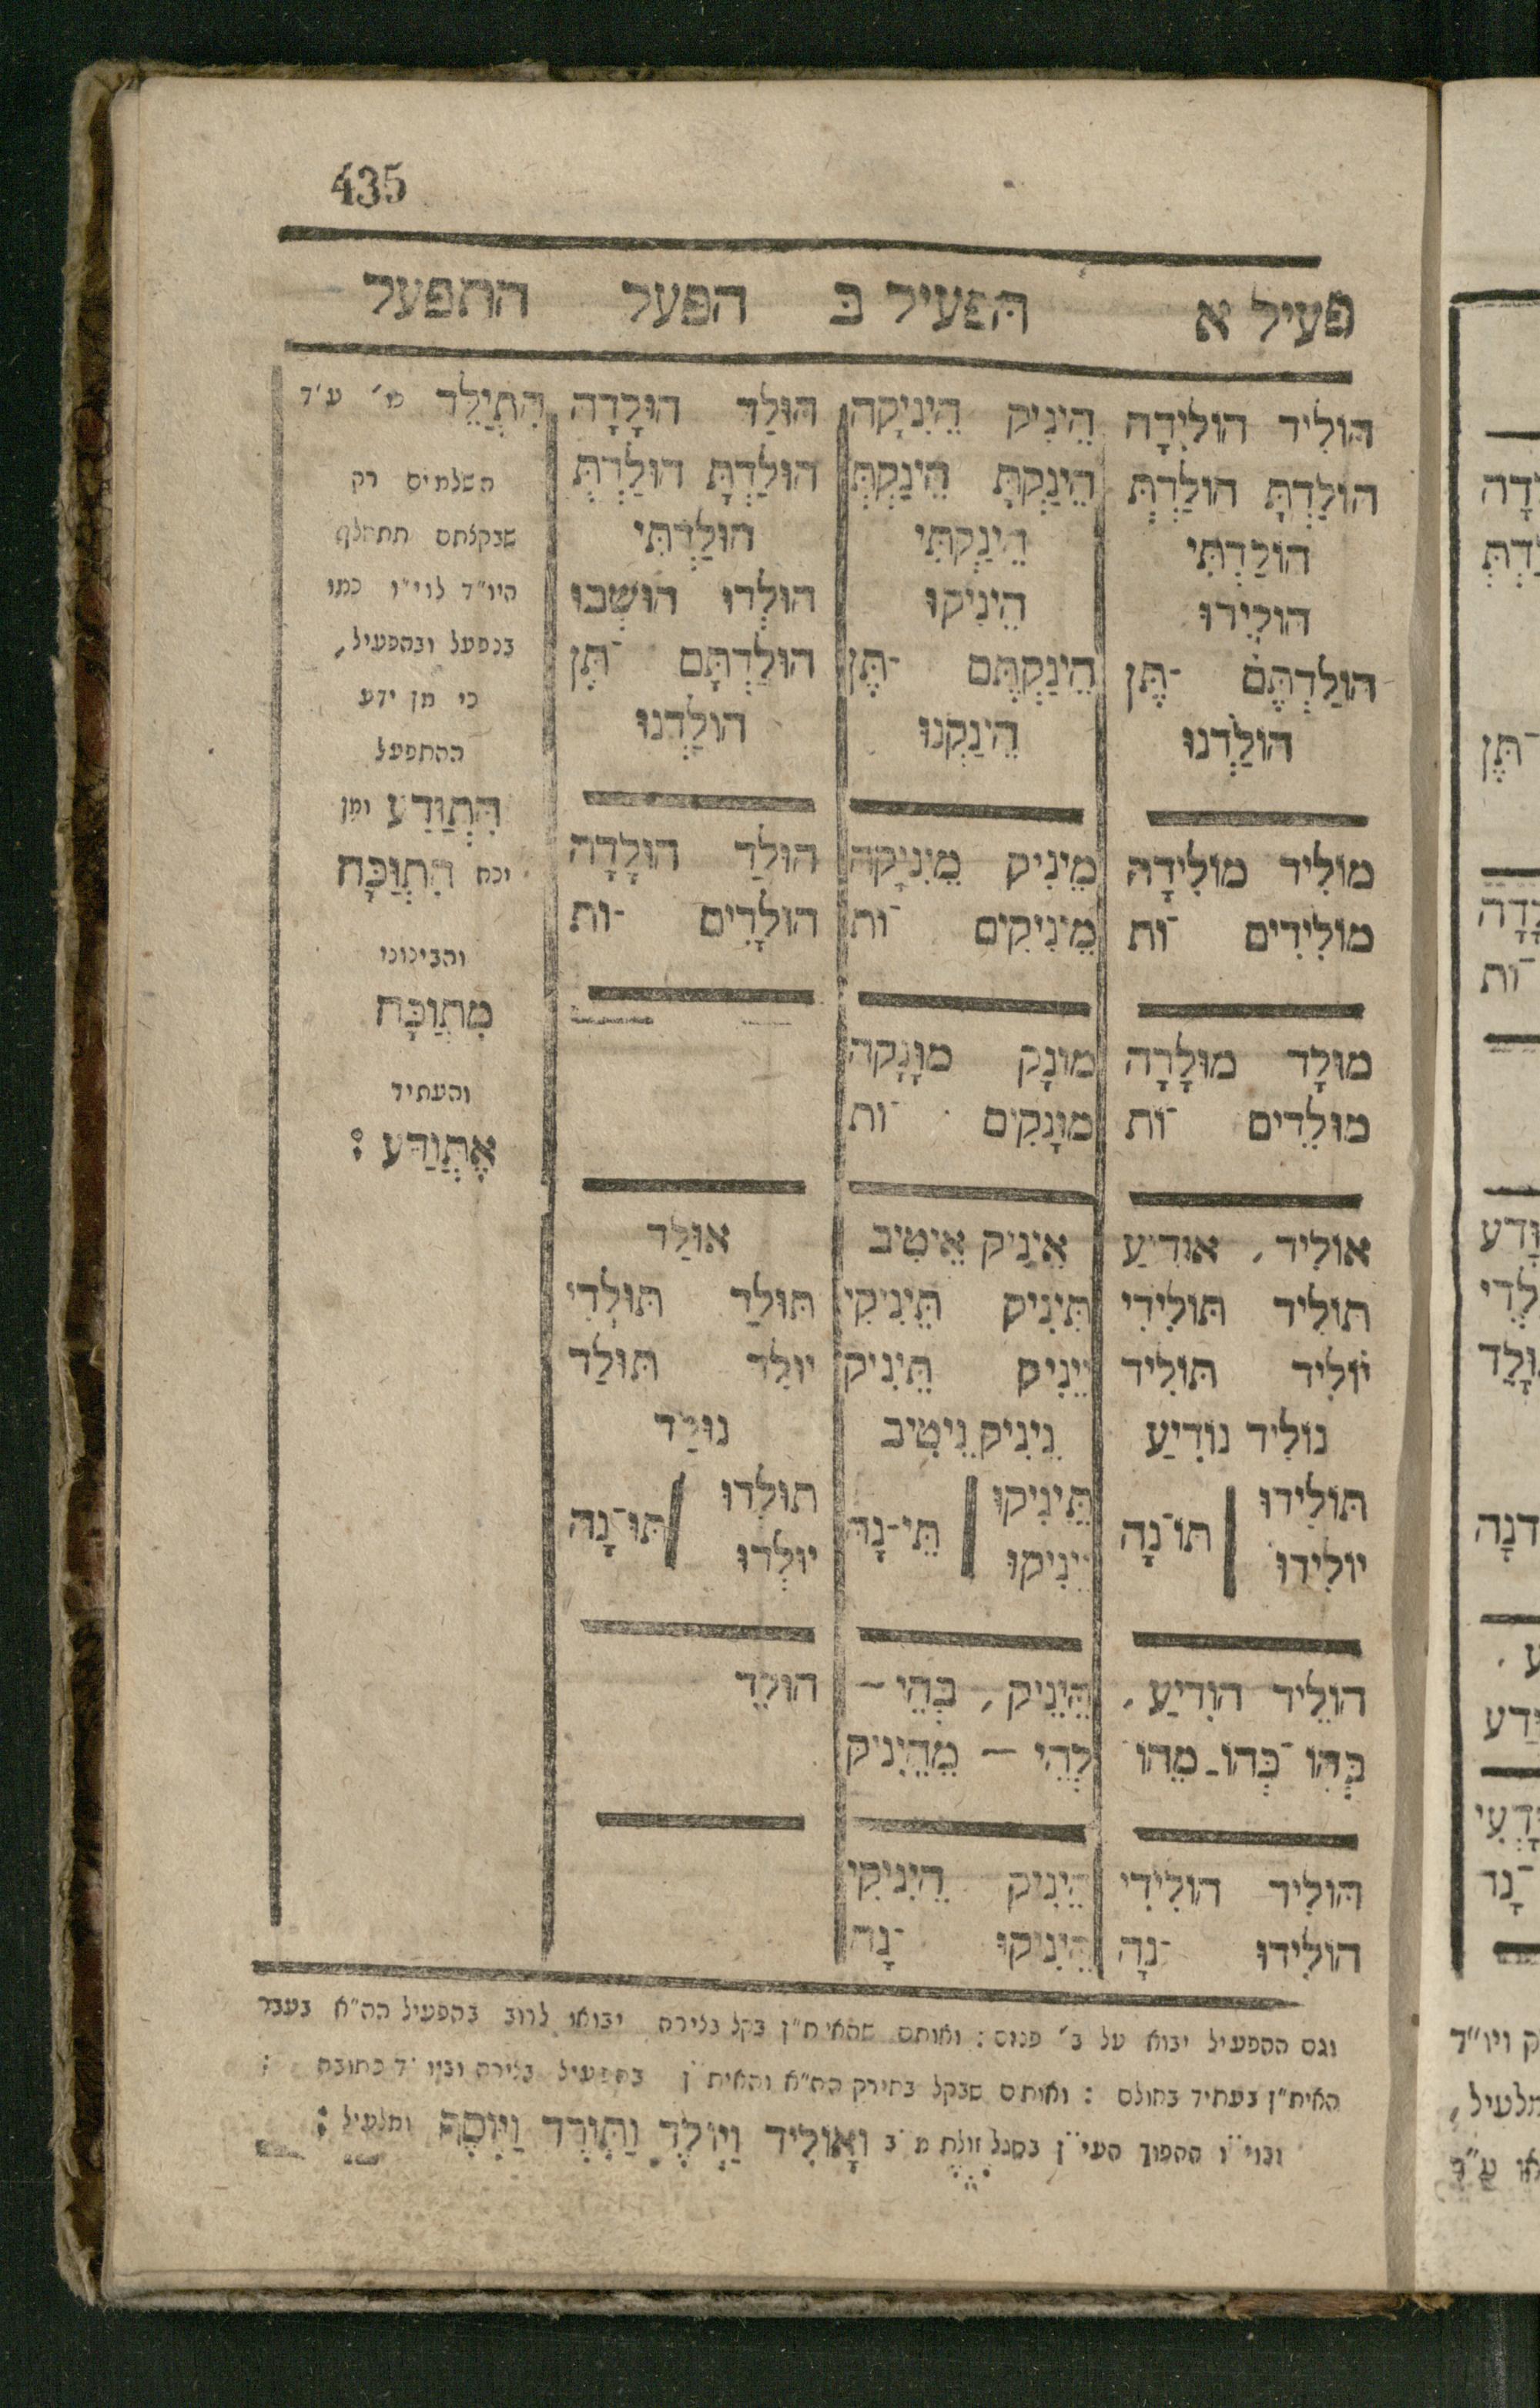 435
פעיל א הפעיל ב הפעל התפעל
הוֹלִיד הוֹלִידָה הֵינִיק הֵינִיקָה הוּלַד הוּלָדָה הִתְיַלֵּד
הוֹלַדְתָּ הוֹלַדְתְּ הֵינַקְתָּ הֵינַקְתְּ הוּלַדְתָּ הוּלַדְתְּ השלמים רק
הוֹלַדְתִּי הֵינַקְתִּי הוּלַדְתִּי שבקלתם תתחלף
הוֹלִידוּ הֵינִיקוּ הוּלְדוּ הוּשְׁבוּ היו״ד לוי״ו כמו
הוֹלַדְתֶּם ־תֶּן הֵינַקְתֶּם ־תֶּן הוּלַדְתֶּם ־תֶּן בנפעל ובהפעיל,
הוֹלַדְנוּ הֵינַקְנוּ הוּלַדְנוּ כי מן ידע
ההתפעל
הִתְוַדַּע ומן
מוֹלִיד מוֹלִידָה מֵינִיק מֵינִיקָה הוּלַד הוּלָדָה יכח הִתְוַכַּח
מוֹלִידִים ־וֹת מֵינִיקִים ־וֹת הוּלָדִים ־וֹת
והבינוני
מִתְוַכַּח
מוּלָד מוּלָדָה מוּנָק מוּנָקָה
מוּלָדִים ־וֹת מוּנָקִים ־וֹת
והעתיד
אֶתְוַדַּע :
אוֹלִיד, אוֹדִיעַ אֵינִיק אֵיטִיב אוּלַד
תּוֹלִיד תּוֹלִידִי תֵּינִיק תֵּינִיקִי תּוּלַד תּוּלְדִי
יוֹלִיד תּוֹלִיד יֵינִיק תֵּינִיק יוּלַד תּוּלַד
נוֹלִיד נוֹדִיעַ נֵינִיק נֵיטִיב נוּלַד
תּוֹלִידוּ תֵּינִיקוּ תּוּלְדוּ
תּוֹ־נָה תֵּי־נָה תּוּ־נָה
יוֹלִידוּ יֵינִיקוּ יוּלְדוּ
הוֹלִיד הוֹדִיעַ, הֵינִיק, בְּהֵי — הוּלֵד
בְּהוֹ־ כְּהוֹ־ מֵהוֹ־ לְהֵי — מֵהֵינִיק
הוֹלִיד הוֹלִידִי הֵינִיק הֵינִיקִי
הוֹלִידוּ ־נָה הֵינִיקוּ ־נָה
וגם ההפעיל יבוא על ב׳ פנים: ואותם שהאית״ן בקל בצירה יבואו לרוב בהפעיל הה״א בעבר
האית״ן בעתיד בחולם : ואותם שבקל בחירק הה״א והאית״ן בהפעיל בצירה וביו״ד כתובה :
ובוי״ו ההפוך העי״ן בסגל זולת מ״ב וָאוֹלִיד וַיּוֹלֶד וַתּוֹרֶד וַיּוֹסֶף ומלעיל :